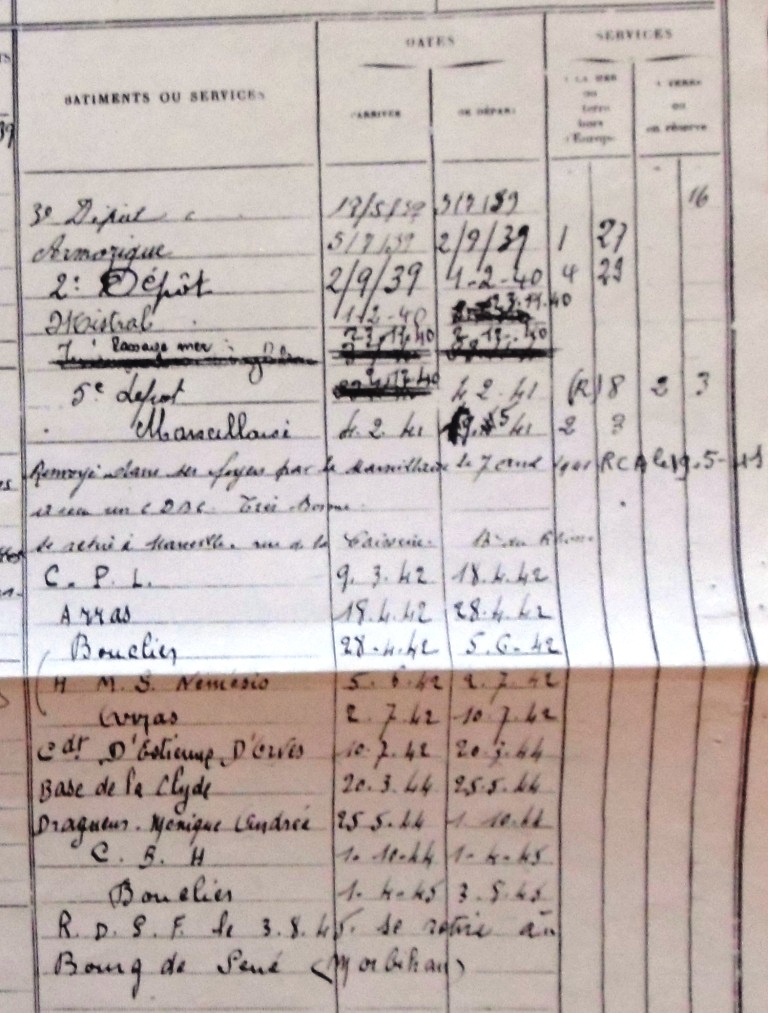 DATES SERVICES
BATIMENTS OU SERVICES D'ARRIVÉE DE DÉPART A LA MER ou terre hors d'Europe A TERRE ou en réserve
39
3e Dépôt 5/7/39 16
Armorique 5/7/39 2/9/39 1 27
2e Dépôt 2/9/39 1-2-40 4 29
Mistral 1-2-40 23.11.40
Passage mer 23.11.40 2.12.40
5e dépôt 2.12.40 4.2.41 (R) 8 2 3
Marseillaise 4.2.41 5 41 2 3
Renvoyé dans ses foyers par le Marseillaise le 7 RCA le 19.5-
un Très Bonne
Se retire à Marseille rue de la
C. P. L. 9.3.42 18.4.42
Arras 18.4.42 28.4.42
Bouclier 28-4.42 5.6.42
H M. S. Nemesis 5.6.42 2.7.42
Arras 2.7.42 10.7.42
Cdt D'Estienne D'Orves 10.7.42 20.3.44
Base de la Clyde 20.3.44 25.5.44
Dragueur. Monique Andrée 25.5.44 1.10.44
C. B. H 1.10.44 1-4-45
Bouclier 1.4-45 3.5.45
R. D. S. F. le 3.8.45. se retire au
Bourg de Sené (Morbihan)